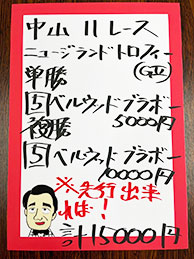 中山11レース
ニュージランドトロフィー
単勝 (GII)
5 ベルウッドブラボー
複勝 5000円
5 ベルウッドブラボー
10000円
※先行出来
れば!
計15000円